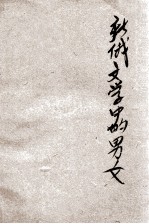 新俄文学中的男女